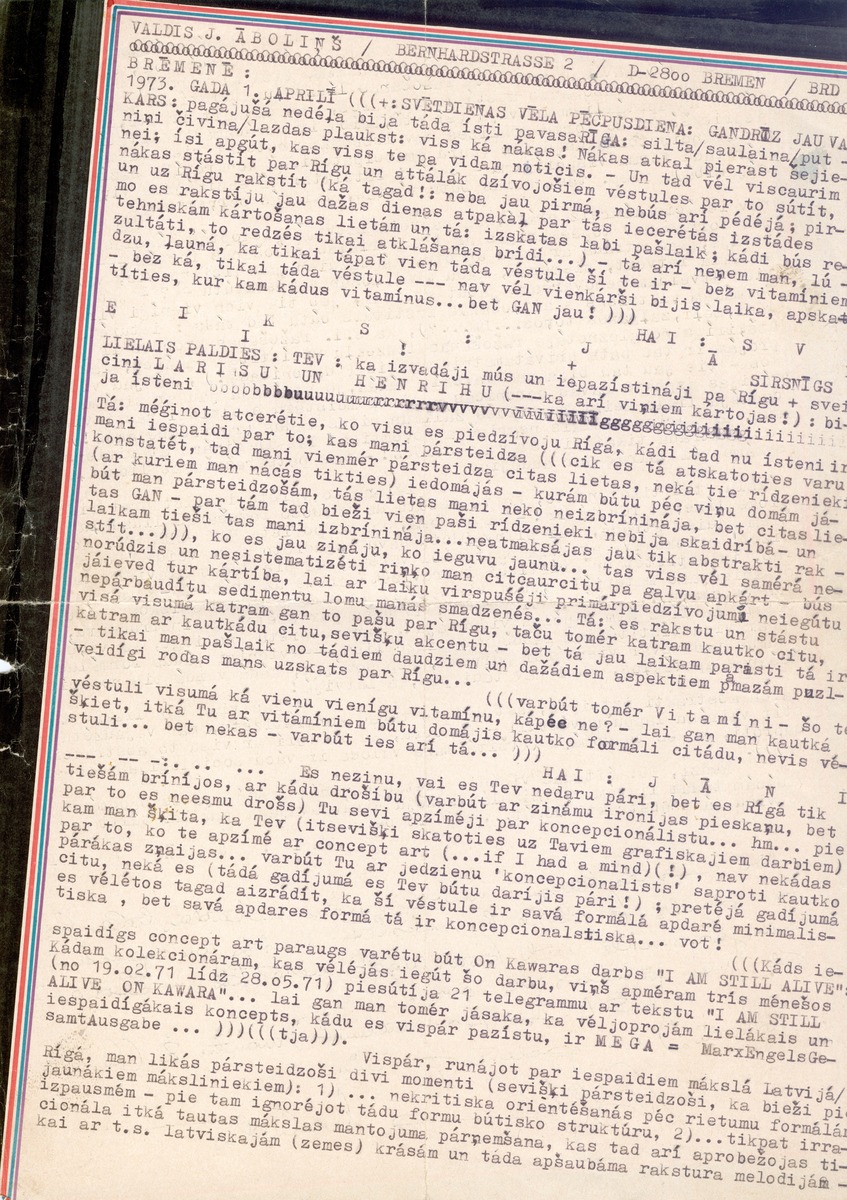 VALDIS J. ĀBOLIŅŠ / BERNHARDSTRASSE 2 / D-28oo BREMEN / BRD
BRĒMENĒ :
1973. GADA 1. APRILĪ (((+:SVĒTDIENAS VĒLA PĒCPUSDIENA: GANDRĪZ JAU VA
KARS: pagájušá nedéla bija táda ísti pavasaRĪGA: silta/saulaina/put -
niņi čivina/lazdas plaukst: viss ká nákas! Nákas atkal pierast šejie-
nei; ísi apgút, kas viss te pa vidam noticis. - Un tad vél viscaurim
nákas stástít par Rígu un attálák dzívojošiem véstules par to sútít,
un uz Rígu rakstít (ká tagad!: neba jau pirmá, nebús arí pédéjá; pir-
mo es rakstíju jau dažas dienas atpakaļ par tás iecerétás izstádes
tehniskám kártošanas lietám un tá: izskatas labi pašlaik; kádi bús re-
zultáti, to redzés tikai atklášanas brídí...) - tá arí neņem man, lú -
dzu, ļauná, ka tikai tápat vien táda véstule ší te ir - bez vitamíniem
- bez ká, tikai táda véstule --- nav vél vienkárši bijis laika, apskat
títies, kur kam kádus vitamínus...bet GAN jau! )))
E I K S : HAI : S V
I ! J Ā
LIELAIS PALDIES : TEV : ka izvadáji mús un iepazístináji pa Rígu + svei
+ SIRSNĪGS
cini L A R I S U UN H E N R I H U (---ka arí viņiem kártojas!) : bi-
ja ísteni bbbbbbbbbuuuuuurrrrrrrrvvvvvvvvvIIIIIgggggggiiiiiiiiiiiii
Tá: méģinot atcerétie, ko visu es piedzívoju Rígá, kádi tad nu ísteni ir
mani iespaidi par to; kas mani pársteidza (((cik es tá atskatoties varu
konstatét, tad mani vienmér pársteidza citas lietas, neká tie rídzenieki
(ar kuriem man nácás tikties) iedomájás - kurám bútu péc viņu domám já-
bút man pársteidzošám, tás lietas mani neko neizbrínínája, bet citas lie-
tas GAN - par tám tad bieži vien paši rídzenieki nebija skaidríbá- un
laikam tieši tas mani izbrínínája...neatmaksájas jau tik abstrakti rak -
stít...))), ko es jau zináju, ko ieguvu jaunu... tas viss vél samérá ne-
norúdzis un nesistematizéti riņko man citcaurcitu pa galvu apkárt - bús
jáieved tur kártíba, lai ar laiku virspuséji primárpiedzívojumi neiegútu
nepárbaudítu sedimentu lomu manás smadzenés... Tá: es rakstu un stástu
visá visumá katram gan to pašu par Rígu, taču tomér katram kautko citu,
katram ar kautkádu citu,sevišķu akcentu - bet tá jau laikam parasti tá ir
- tikai man pašlaik no tádiem daudziem un dažádiem aspektiem pmazám puzl-
veidígi rodas mans uzskats par Rígu...
(((varbút tomér V i t a m í n i - šo te
véstuli visumá ká vienu vienígu vitamínu, kápéc ne? - lai gan man kautká
šķiet, itká Tu ar vitámíniem bútu domájis kautko formáli citádu, nevis vé-
stuli... bet nekas - varbút ies arí tá... )))
HAI : J Ā N I
---. -- -:. .. ... Es neziņu, vai es Tev nedaru pári, bet es Rígá tik
tiešám brínijos, ar kádu drošíbu (varbút ar zinámu ironijas pieskaņu, bet
par to es neesmu drošs) Tu sevi apzíméji par koncepcionálistu... hm... pie
kam man šķita, ka Tev (itsevišķi skatoties uz Taviem grafiskajiem darbiem)
par to, ko te apzímé ar concept art (...if I had a mind)(!), nav nekádas
párákas zņaijas... varbút Tu ar jedzienu 'koncepcionalists' saproti kautko
citu, neká es (tádá gadíjumá es Tev bútu daríjis pári!) ; pretéjá gadíjumá
es vélétos tagad aizrádít, ka ší véstule ir savá formálá apdaré minimalis-
tiska , bet savá apdares formá tá ir koncepcionalstiska... vot!
(((Káds ie-
spaidígs concept art paraugs varétu bút On Kawaras darbs "I AM STILL ALIVE":
Kádam kolekcionáram, kas véléjás iegút šo darbu, viņš apméram trís ménešos
(no 19.o2.71 lídz 28.o5.71) piesútíja 21 telegrammu ar tekstu "I AM STILL
ALIVE ON KAWARA"... lai gan man tomér jásaka, ka véljoprojám lielákais un
iespaidígákais koncepts, kádu es vispár pazístu, ir M E G A = MarxEngelsGe-
samtAusgabe ... )))(((tja))).
Vispár, runájot par iespaidiem mákslá Latvijá/
Rígá, man likás pársteidzoši divi momenti (sevišķi pársteidzoši, ka bieži pie
jaunákiem máksliniekiem): 1) ... nekritiska orientéšanás péc rietumu formálám
izpausmém - pie tam ignoréjot tádu formu bútisko struktúru, 2)...tikpat irra-
cionála itká tautas mákslas mantojuma párņemšana, kas tad arí aprobežojas ti-
kai ar t.s. latviskajám (zemes) krásám un táda apšaubáma rakstura melodijám -